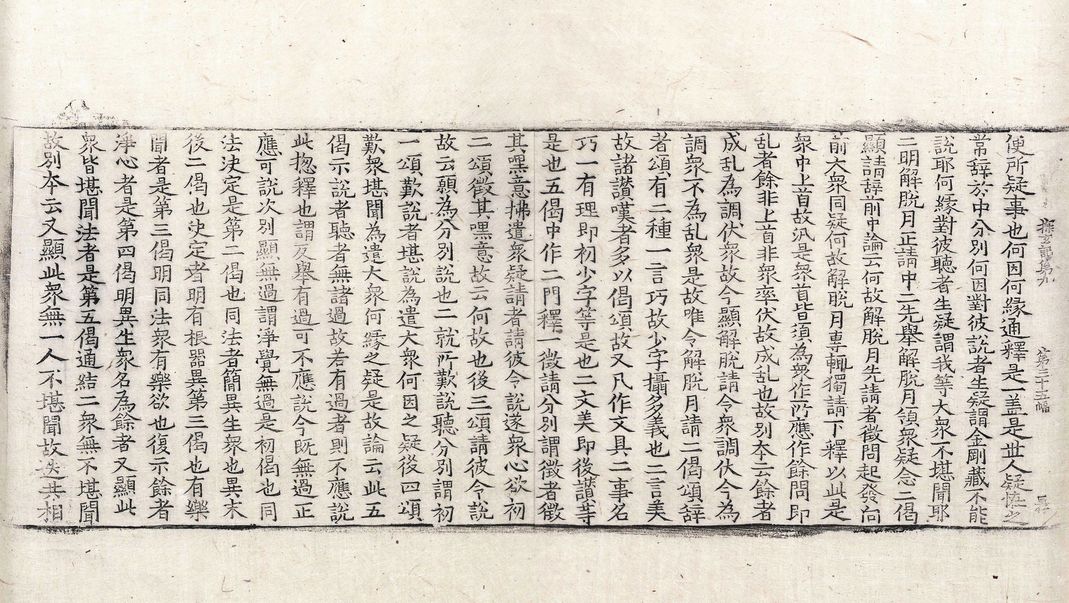 便所疑事也何因何縁通釋是一蓋是世人疑恠之
常辞於中分別何因對彼說者生疑謂金剛藏不能
說耶何縁對彼聽者生疑謂我等大衆不堪聞耶
二明解脫月正請中二先舉解脫月領衆疑念二偈
顯請辞前中論云何故解脫月先請者徵問起發向
前大衆同疑何故解脫月專輒獨請下釋以此是
衆中上首故汎是衆首皆須為衆作所應作餘問即
乱者餘非上首非衆率伏故成乱也故別夲云餘者
成乱為調伏衆故今顯解脫請令衆調伏今為
調衆不為乱衆是故唯令解脫月請二偈頌辞
者頌有二種一言巧故少字攝多義也二言美
故諸讃嘆者多以偈頌故又凡作文具二事名
巧一有理即初少字等是也二文美即後讃等
是也五偈中作二門釋一徵請分別謂徵者徵
其嘿意拂遣衆疑請者請彼令說遂衆心欲初
二頌徵其嘿意故云何故也後三頌請彼令說
故云願為分別說也二就所歎說聽分別謂初
一頌歎說者堪說為遣大衆何因之疑後四頌
歎衆堪聞為遣大衆何縁之疑是故論云此五
偈示說者聽者無諸過故若有過者則不應說
此揔釋也謂反舉有過可不應說今既無過正
應可說次別顯無過謂淨覺無過是初偈也同
法決定是第二偈也同法者簡異生衆也異末
後二偈也決定者明有根器異第三偈也有樂
聞者是第三偈明同法衆有樂欲也復示餘者
淨心者是第四偈明異生衆名為餘者又顯此
衆皆堪聞法者是第五偈通結二衆無不堪聞
故別夲云又顯此衆無一人不堪聞故迭共相
探玄記第九 第三十五幅